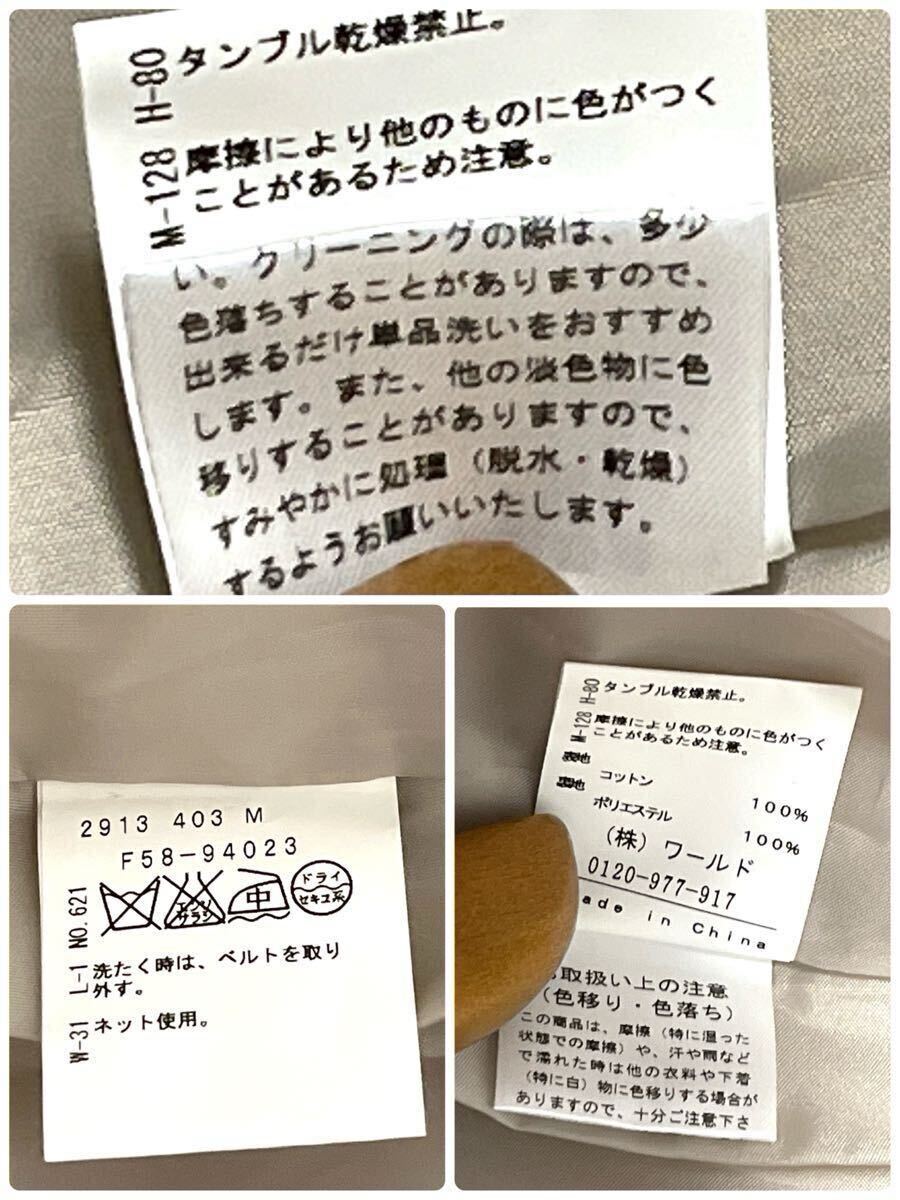 H-80 タンブル乾燥禁止。
M-128 摩擦により他のものに色がつく
ことがあるため注意。
い。クリーニングの際は、多少
色落ちすることがありますので、
出来るだけ単品洗いをおすすめ
します。また、他の淡色物に色
移りすることがありますので、
すみやかに処理（脱水・乾燥）
するようお願いいたします。
2913 403 M
F58-94023
NO.621
エンソ
サラシ
中
ドライ
セキユ系
L-1 洗たく時は、ベルトを取り
外す。
W-31 ネット使用。
H-80 タンブル乾燥禁止。
M-128 摩擦により他のものに色がつく
ことがあるため注意。
表地 コットン 100%
裏地 ポリエステル 100%
(株) ワールド
0120-977-917
ade in China
取扱い上の注意
(色移り・色落ち)
この商品は、摩擦（特に湿った
状態での摩擦）や、汗や雨など
で濡れた時は他の衣料や下着
（特に白）物に色移りする場合が
ありますので、十分ご注意下さ